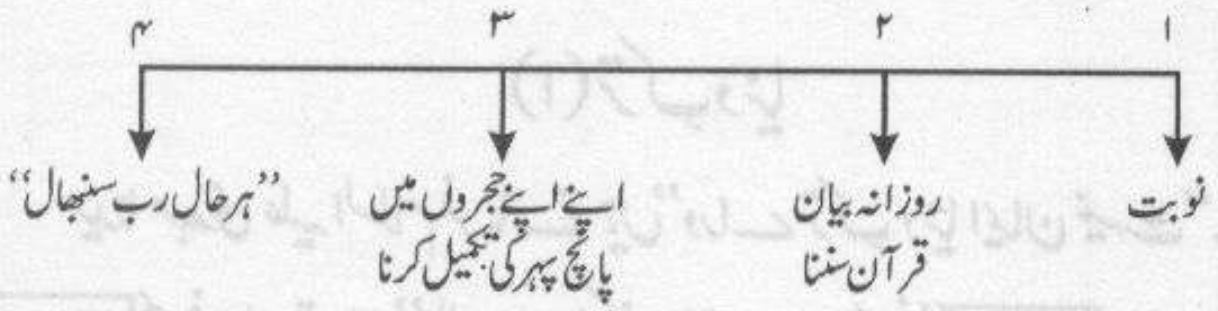 ۱ ۲ ۳ ۴
نوبت
روزانہ بیان
قرآن سننا
اپنے اپنے حجروں میں
پانچ پہر کی تکمیل کرنا
”ہر حال رب سنبھال“